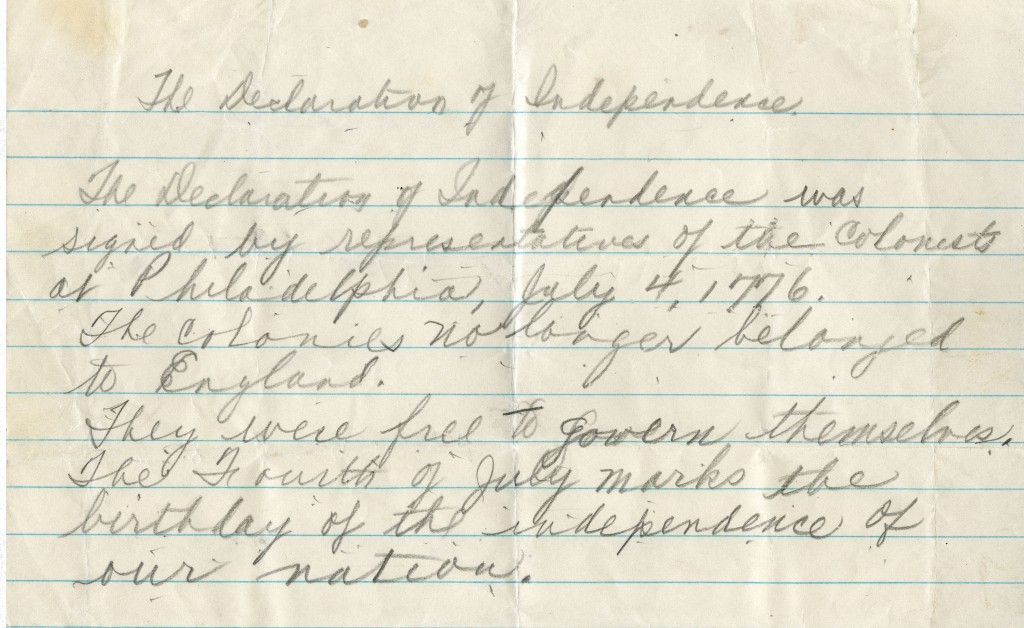 The Declaration of Independence.
The Declaration of Independence was
signed by representatives of the Colonists
at Philadelphia, July 4, 1776.
The Colonies no longer belonged
to England.
They were free to govern themselves.
The Fourth of July marks the
birthday of the independence of
our nation.